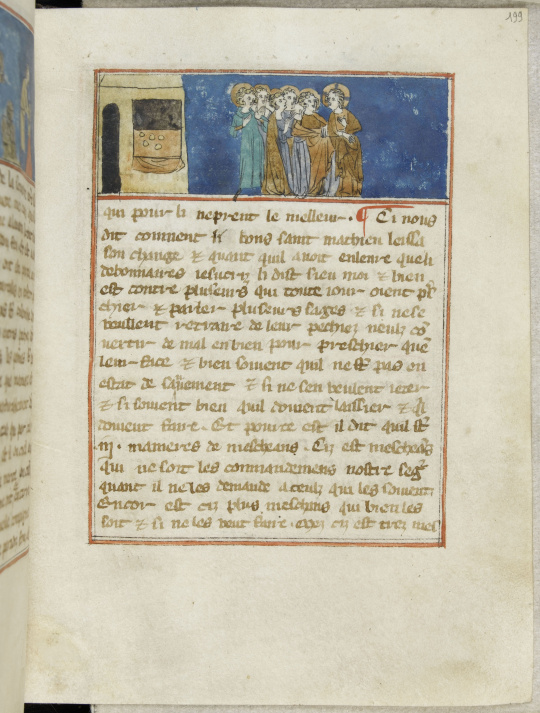 199
qui pour li ne prent le meilleur. ¶ Ci nous
dit comment li bons saint mathieu leissa
son change ⁊ quant quil avoit en terre quant li
debonnaires iesucriz li dist sieu moi ⁊ bien
est contre pluseurs qui toute iour oient p̃s
chier ⁊ parler pluseurs sages ⁊ si ne se
veullent retraire de leur pechiez neulz cõ
vertir de mal en bien pour preschier quẽ
leur face ⁊ bien sovient quil ne st̃ pas en
estat de sauvement ⁊ si ne sen veulent ieter
⁊ si sevent bien quil doivent laissier ⁊ q̃l
doivent faire. Et pour ce est il dit quil st̃
.iij. manieres de mescheans. Cilz est mescheãs
qui ne soit les commandemens nostre seg̃r
quant il ne les demande a ceulz qui les sevent
Encor est cilz plus meschans qui bien les
soit ⁊ si ne les veut faire. Mes cilz est trez mes